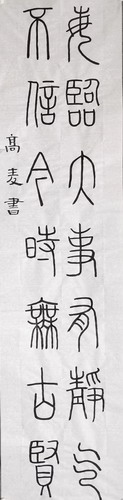 每臨大事有靜气
不信今時無古賢
高麦書